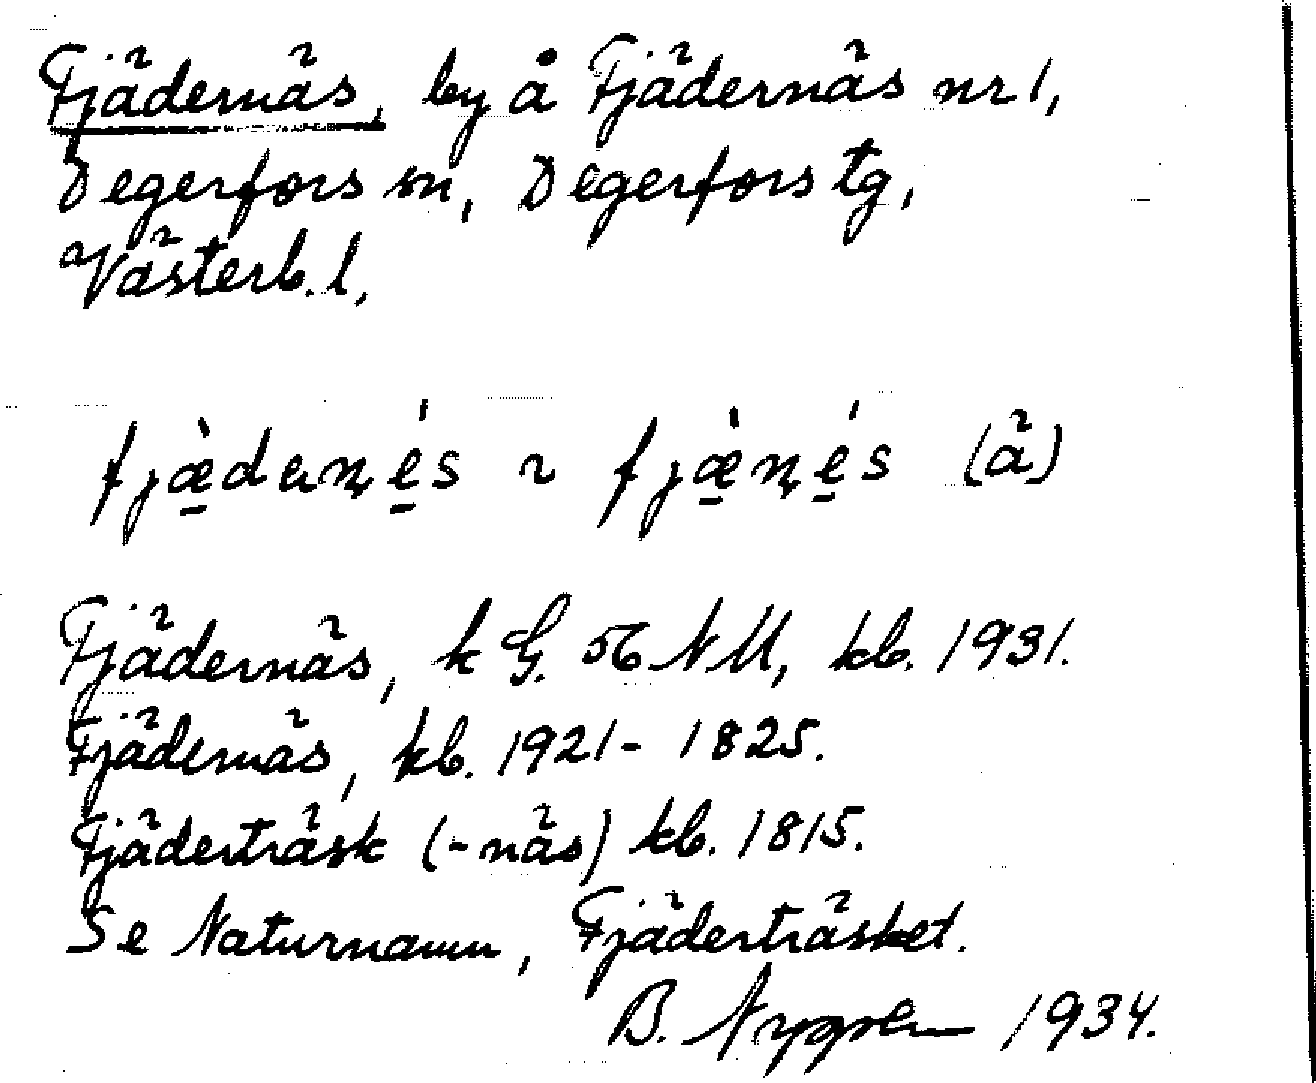 Fjädernäs, by å Fjädernäs nr 1,
Degerfors sn, Degerfors tg,
Västerb. l.
fjæ̠̀dené̠s ~ fjæ̠̀ɳé̠s (ä)
Fjädernäs, k G. 56 NU, kb. 1931.
Fjädernäs, kb. 1921 - 1825.
Fjäderträsk (-näs) kb. 1815.
Se Naturnamn, Fjäderträsket.
B. Nygren 1934.